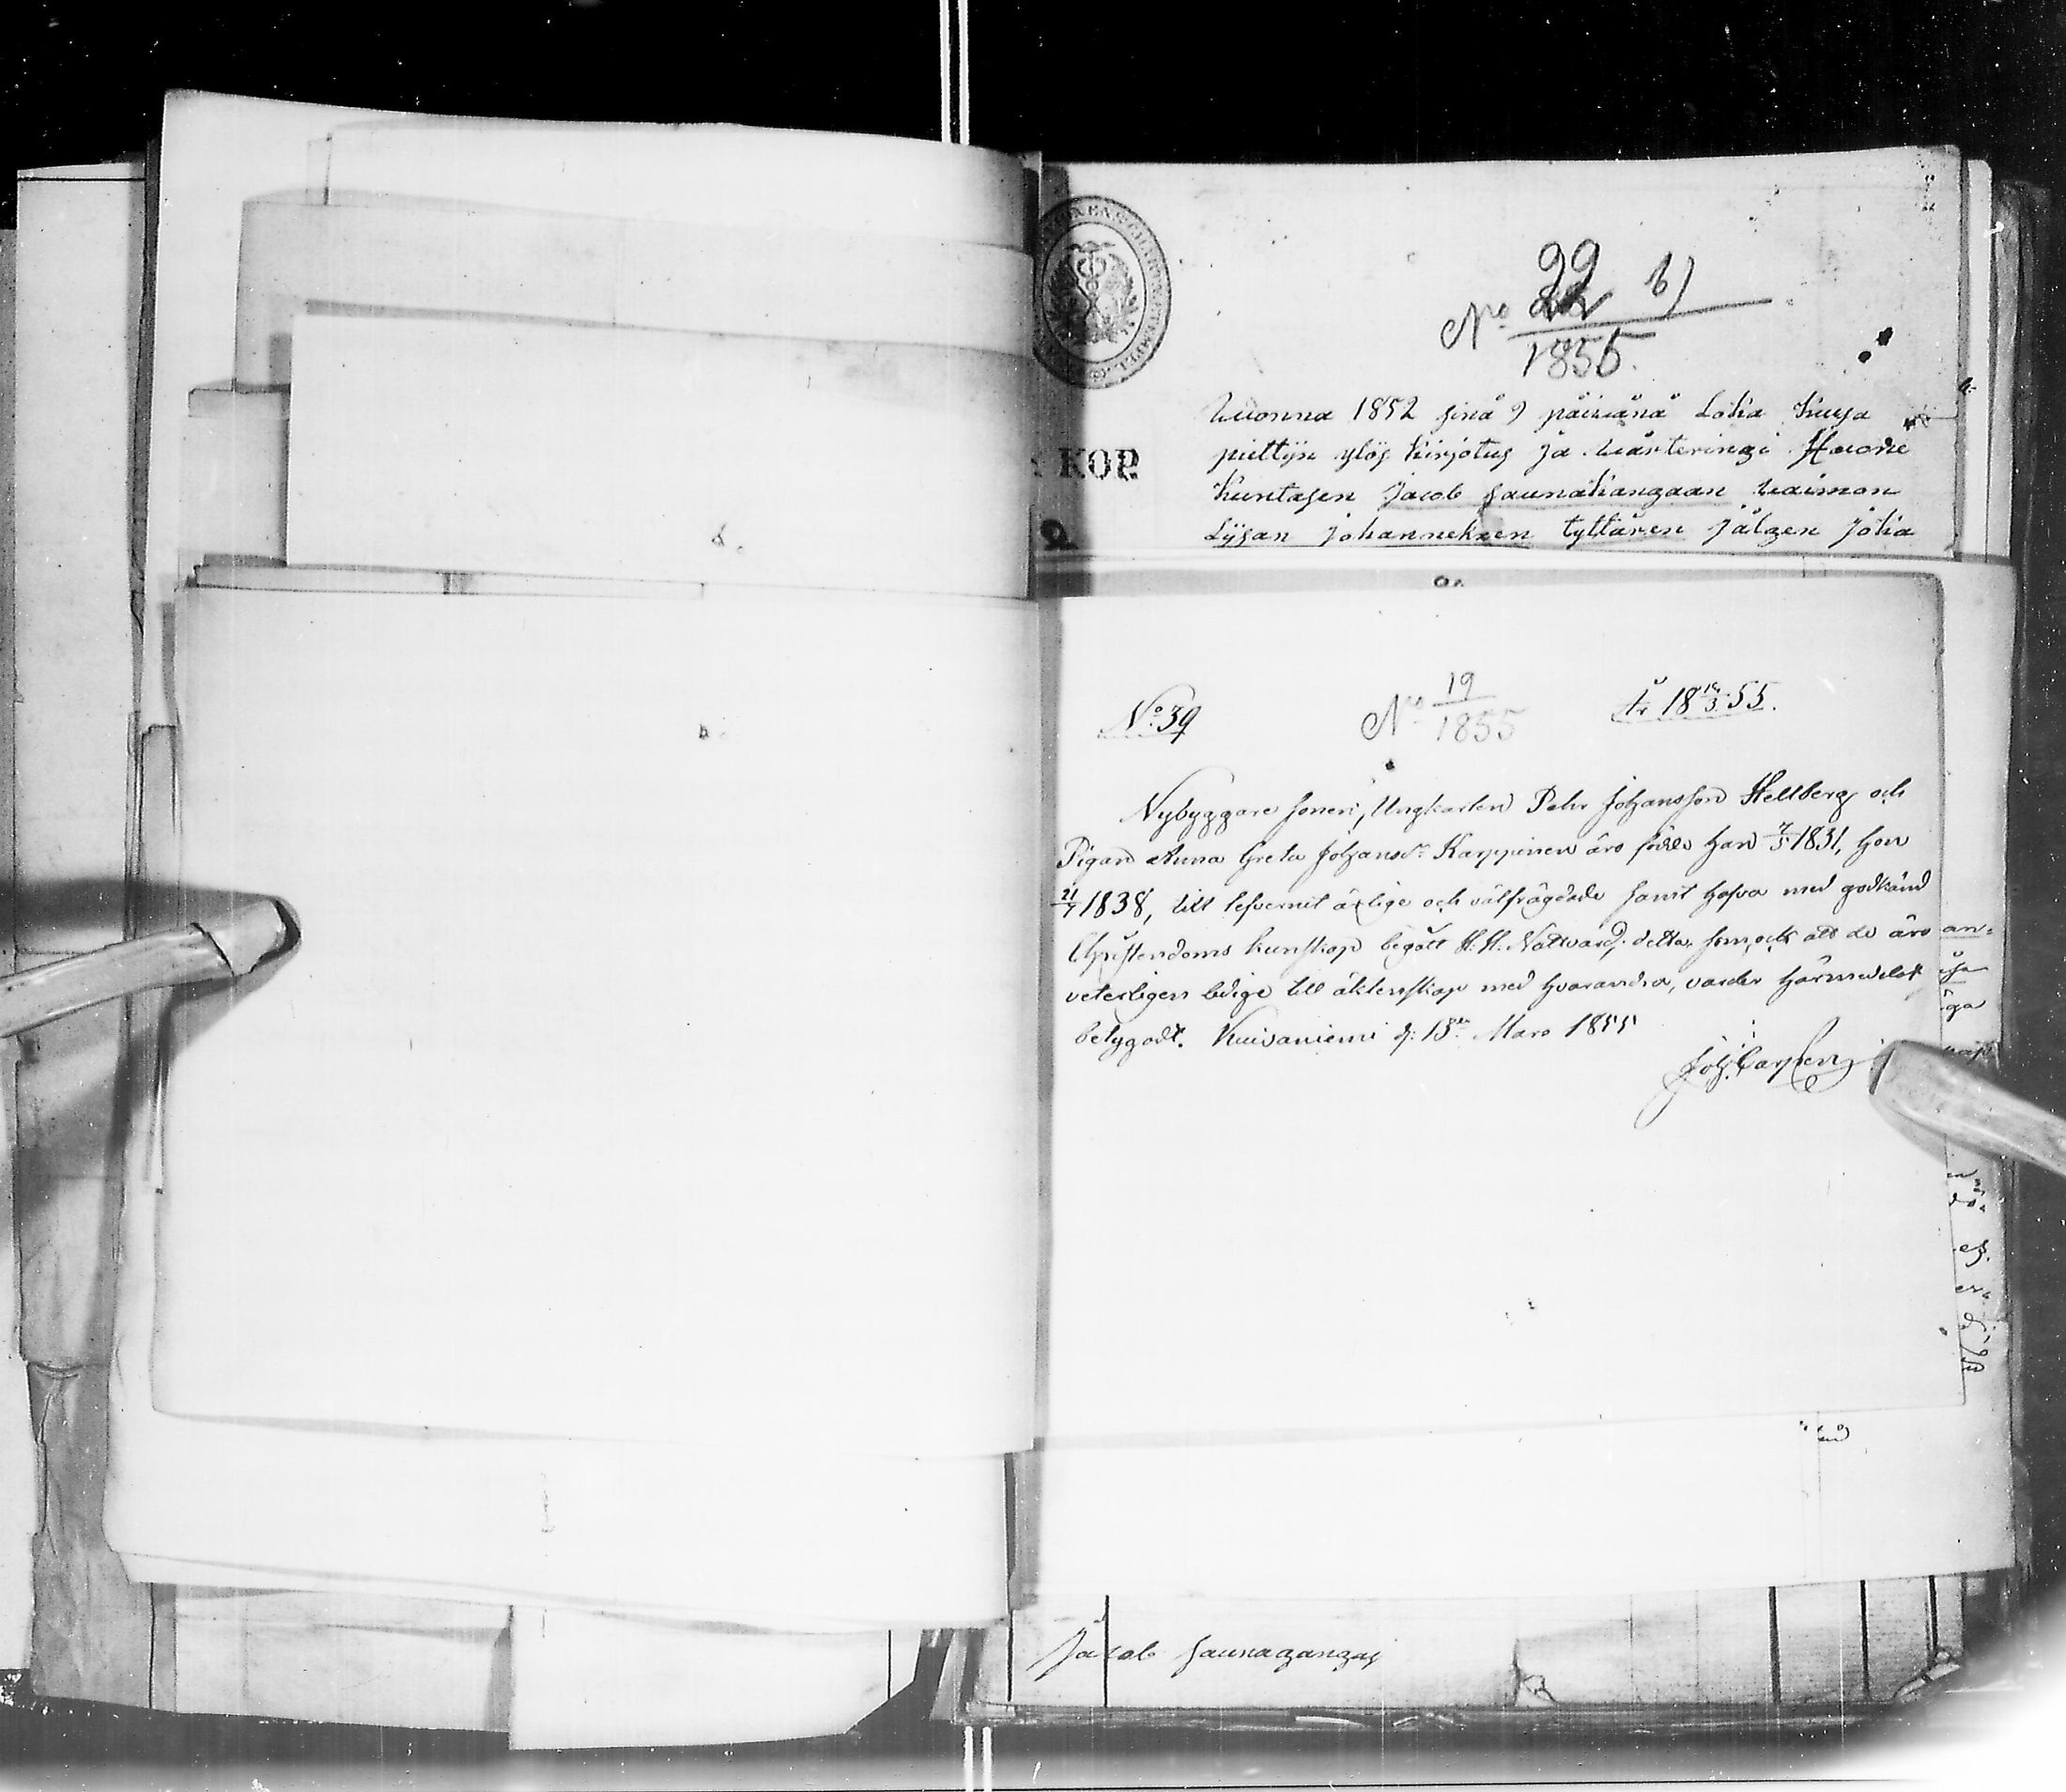 22 b)
No 1855.
Wuonna 1852 sinä 9 päiwänä Loka Kuusa
pidettijn ylös kirjotus ja wärteringi Huone
Kuntasen Jacob saunakangaan waimon
Lijsan Johanneksen tyttären jälgen joka
KOP.
No 39
No 19/1855
År 18 19/3 55.
Nybyggare sonen, Ungkarlen Pehr Johansson Hellberg och
Pigan Anna Greta Johansdr Karppinen äro födde han 7/3 1831, hon
21/7 1838, till lefvernet ärlige och välfrägdade samt hafva med godkänd
Christendoms kunskap begått H. H. Nattvard; detta, som ock att de äro
veterligen ledige till äktenskap med hvarandra, varder härmedelst
betygadt. Kuivaniemi d: 13de Mars 1855
Joh:
an=
iga
Jacob saunagangas